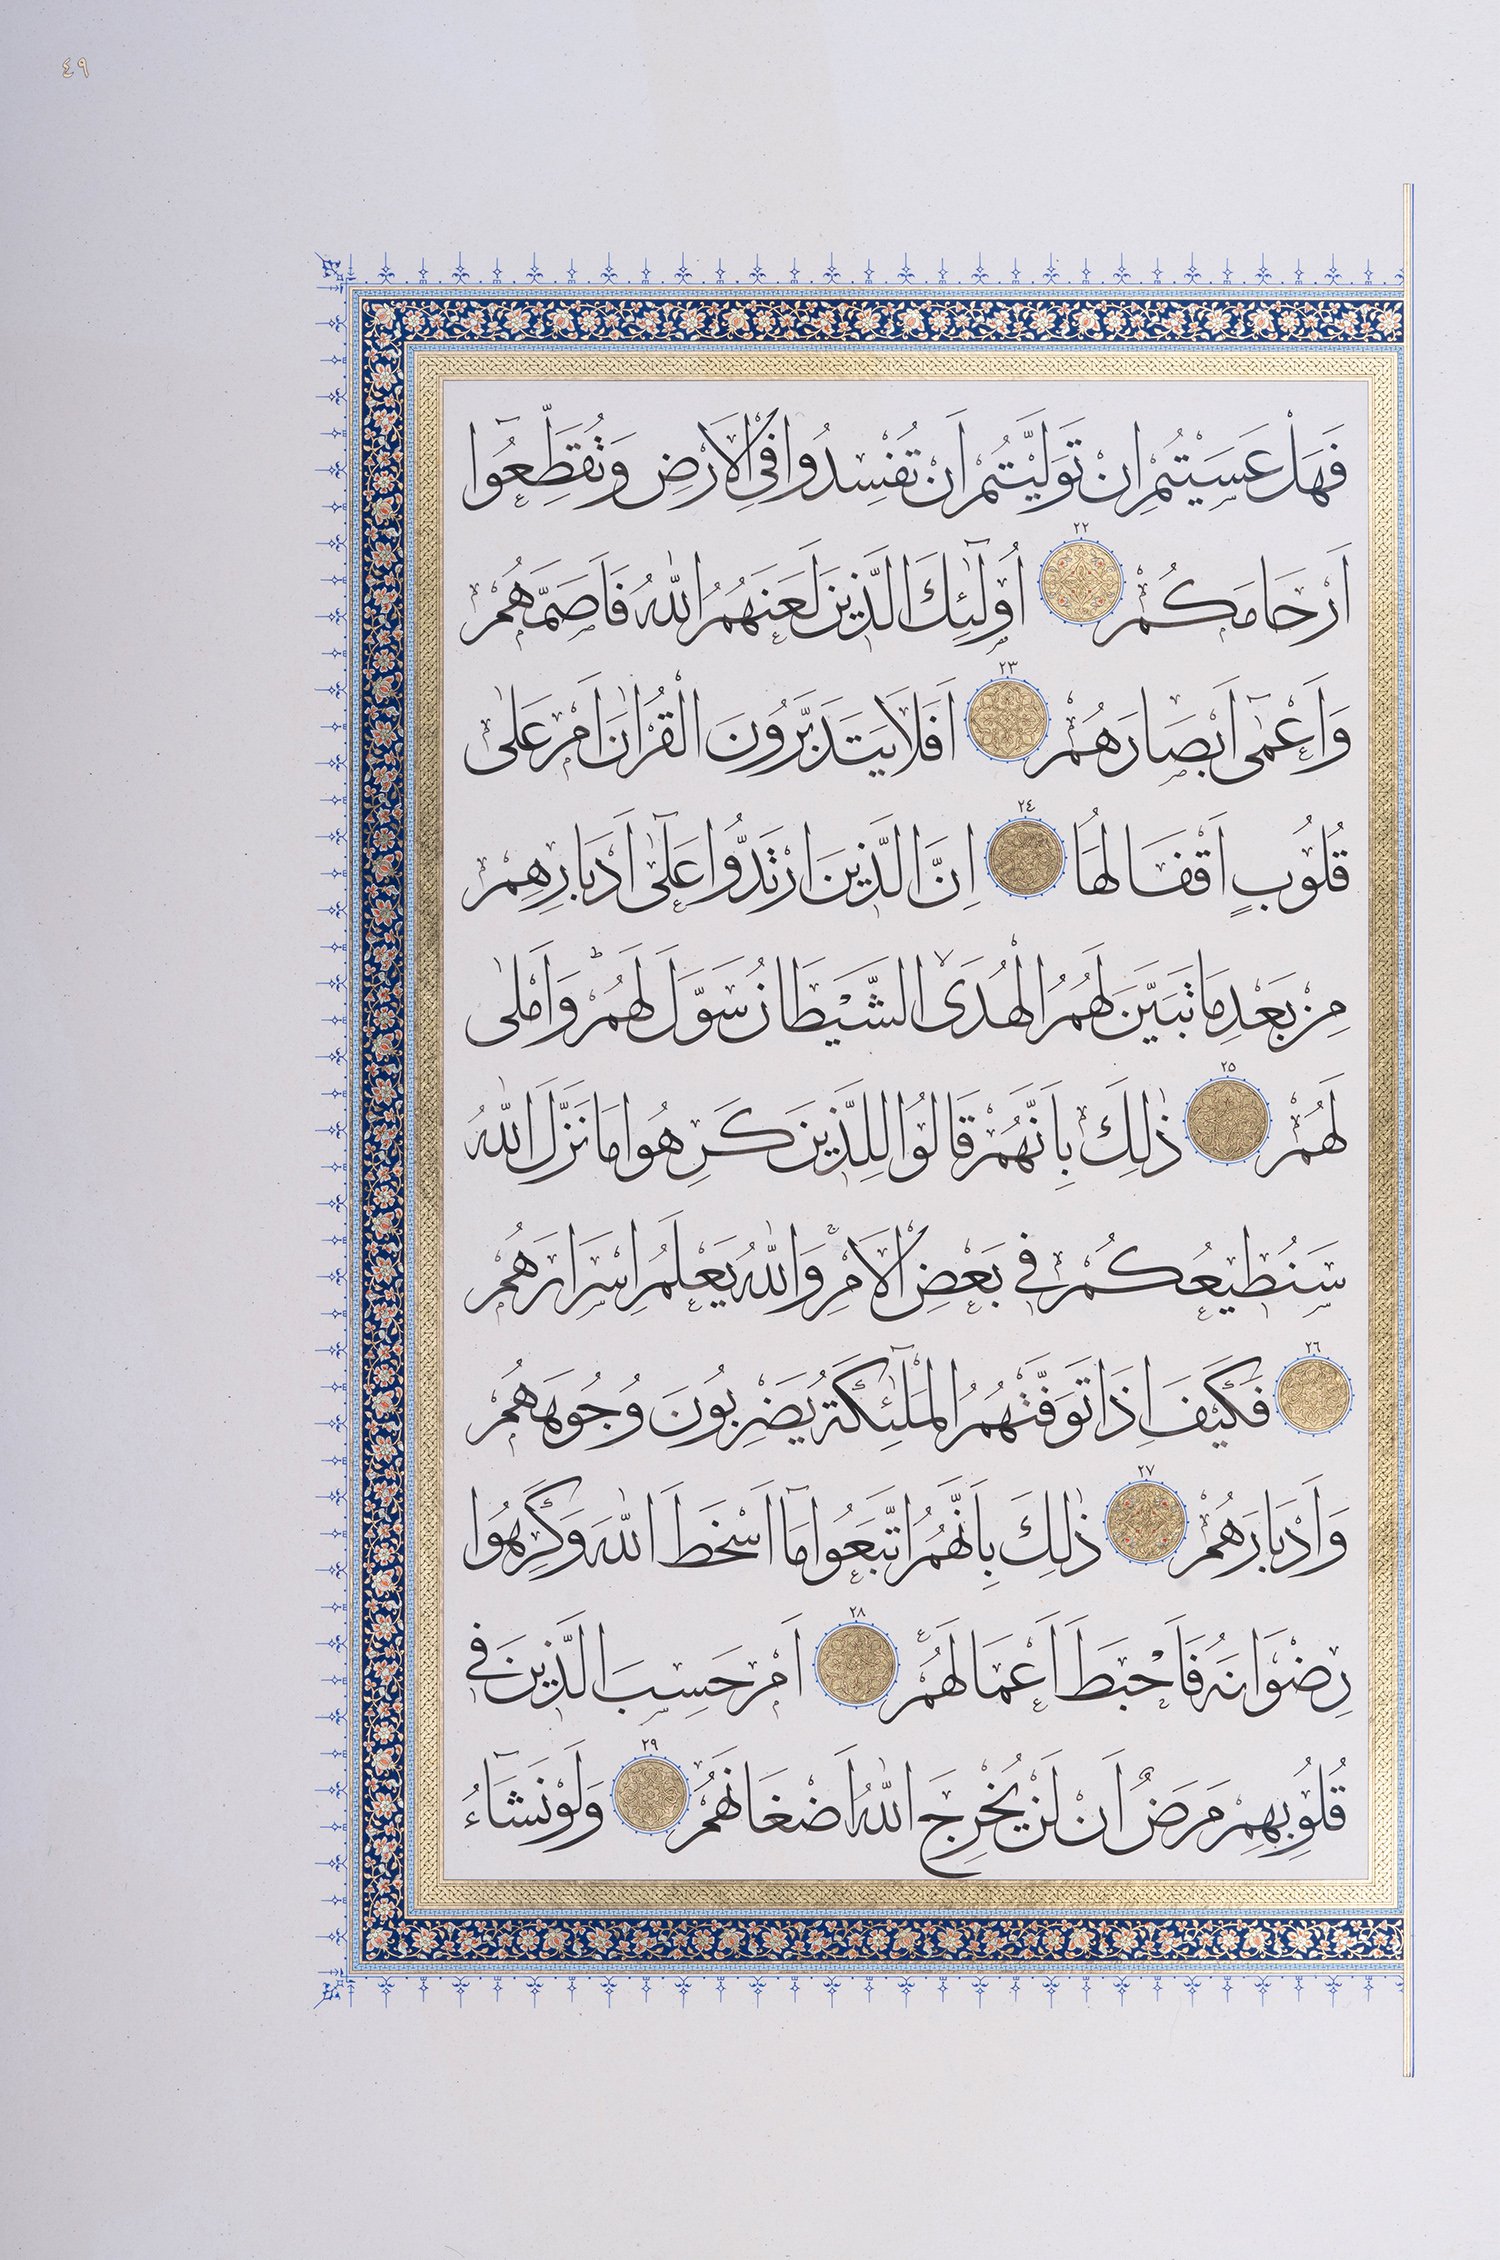 ٤٩
فَهَلْ عَسَيْتُمْ اِنْ تَوَلَّيْتُمْ اَنْ تُفْسِدُوا فِي الْاَرْضِ وَتُقَطِّعُٓوا
اَرْحَامَكُمْ ٢٢ اُو۬لٰٓئِكَ الَّذِينَ لَعَنَهُمُ اللّٰهُ فَاَصَمَّهُمْ
وَاَعْمٰٓى اَبْصَارَهُمْ ٢٣ اَفَلَا يَتَدَبَّرُونَ الْقُرْاٰنَ اَمْ عَلٰى
قُلُوبٍ اَقْفَالُهَا ٢٤ اِنَّ الَّذِينَ ارْتَدُّوا عَلٰٓى اَدْبَارِهِمْ
مِنْ بَعْدِ مَا تَبَيَّنَ لَهُمُ الْهُدَىۙ الشَّيْطَانُ سَوَّلَ لَهُمْۜ وَاَمْلٰى
لَهُمْ ٢٥ ذٰلِكَ بِاَنَّهُمْ قَالُوا لِلَّذِينَ كَرِهُوا مَا نَزَّلَ اللّٰهُ
سَنُطِيعُكُمْ فِي بَعْضِ الْاَمْرِۚ وَاللّٰهُ يَعْلَمُ اِسْرَارَهُمْ
٢٦ فَكَيْفَ اِذَا تَوَفَّتْهُمُ الْمَلٰٓئِكَةُ يَضْرِبُونَ وُجُوهَهُمْ
وَاَدْبَارَهُمْ ٢٧ ذٰلِكَ بِاَنَّهُمُ اتَّبَعُوا مَٓا اَسْخَطَ اللّٰهَ وَكَرِهُوا
رِضْوَانَهُ فَاَحْبَطَ اَعْمَالَهُمْ۟ ٢٨ اَمْ حَسِبَ الَّذِينَ فِي
قُلُوبِهِمْ مَرَضٌ اَنْ لَنْ يُخْرِجَ اللّٰهُ اَضْغَانَهُمْ ٢٩ وَلَوْ نَشَٓاءُ